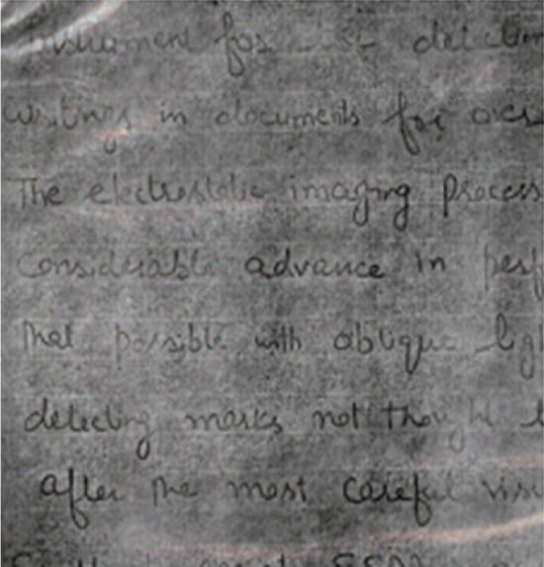 instrument for detection
writings in documents for over
The electrostatic imaging process
considerable advance in perf
that possible with oblique lig
detecting marks not thought
after the most careful visu